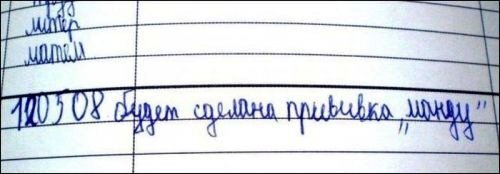 литер
матем
120508 будет сделана прививка „манду"